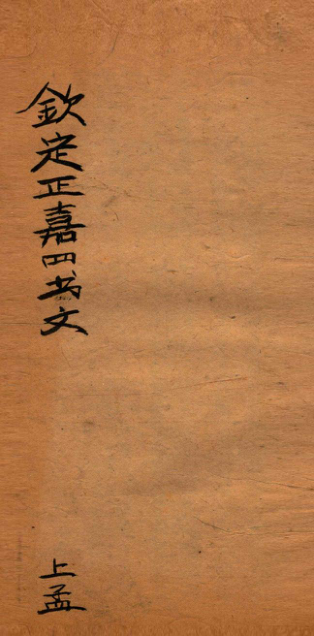 欽定正嘉四书文
上孟